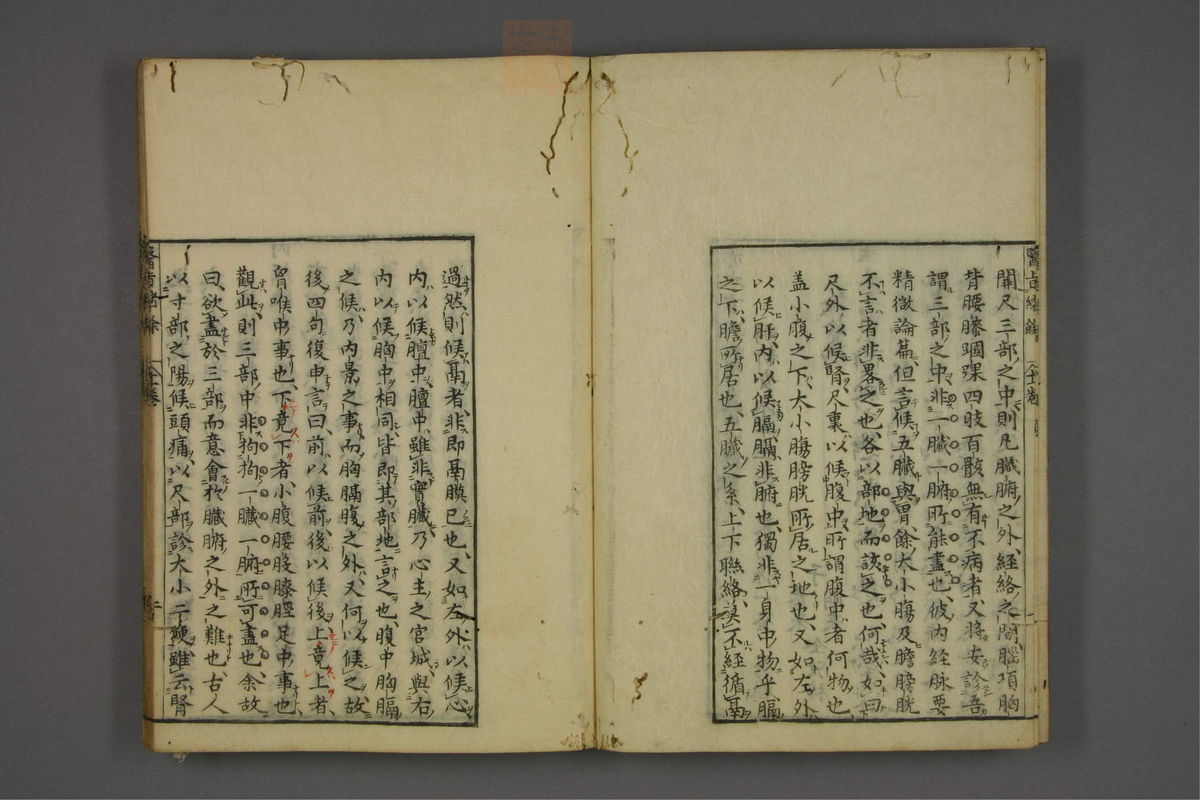 關尺三部之中則凡臟腑之外經絡之間腦項胸
背腰膝膕踝四肢百骸無有不病者又將安診吾
謂三部之中非一臟一腑所能盡也彼內経脉要
精微論篇但言候五臟與胃餘大小膓及膽膀胱
不言者非畧之也各以部地而該之也何哉如曰
尺外以候腎尺裏以候腹中所謂腹中者何物也
盖小腹之下大小膓膀胱所居之地也又如左外
以候肝內以候膈膈非腑也獨非一身中物乎膈
之下膽所居也五臟之系上下聯絡莫不經循鬲
過然則候鬲者非即鬲膜已也又如左外以候心
內以候膻中膻中雖非實臟乃心主之宮城與右
內以候胸中相同皆即其部地言之也腹中胸膈
之候乃內景之事而胸膈腹之外又何以候之故
後四句復申言曰前以候前後以候後上竟上者
胷喉中事也下竟下者小腹腰股膝脛足中事也
觀此則三部中非拘拘一臟一腑所可盡也余故
曰欲盡於三部而意會於臟腑之外之難也古人
以寸部之陽候頭痛以尺部診大小二便雖云腎